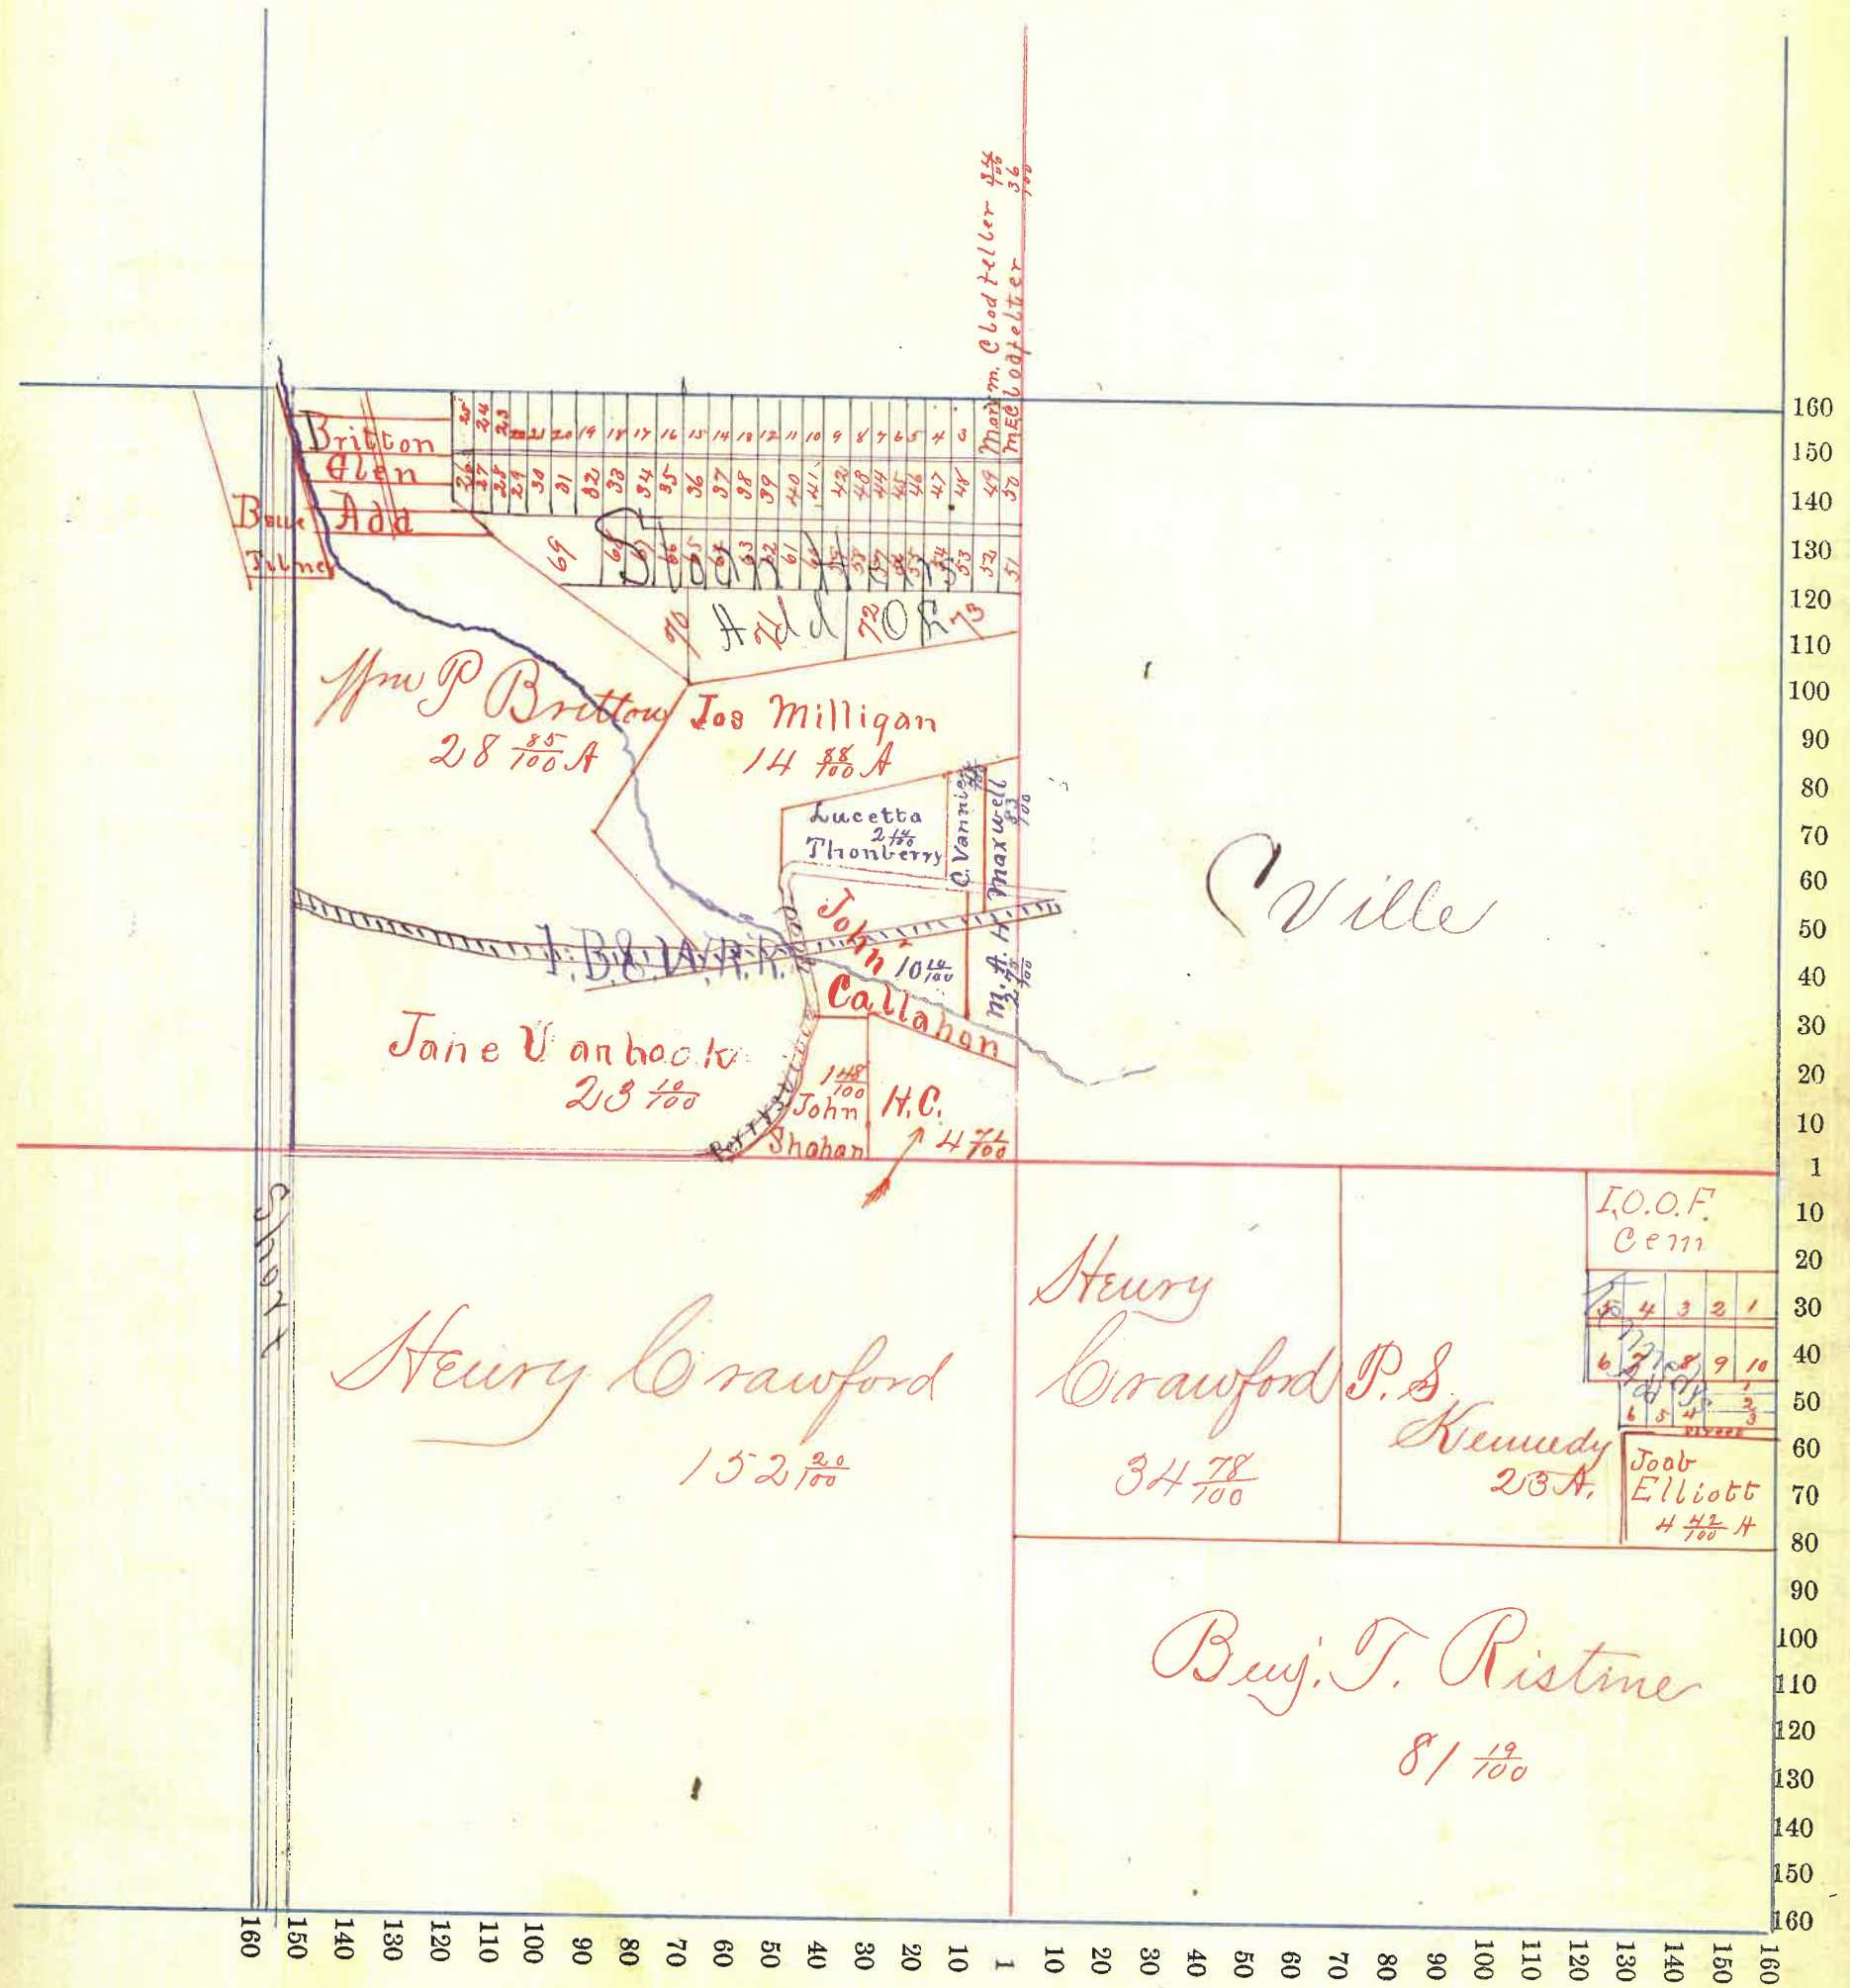 Mary m. Clodfelter 34/100
M E Clodfelter 36/100
25 24 23 22 21 20 19 18 17 16 15 14 13 12 11 10 9 8 7 6 5 4 3
Britton
Glen
Add
26 27 28 29 30 31 32 33 34 35 36 37 38 39 40 41 42 43 44 45 46 47 48 49 50
Belle
69 68 67 66 65 64 63 62 61 60 59 58 57 56 55 54 53 52 51
Sloan Heirs
70 71 72 73
Add OL
Wm P Britton
28 85/100 A
Jos Milligan
14 88/100 A
Lucetta
2 14/100
Thonberry
C. Vannice
Maxwell
83/100
M. A. H
2 75/100
John
10 10/100
Callahan
I. B. & W. R. R.
Road
Perrysville
Jane Vanhook
23 10/100
1 48/100
John
Shahan
H. C.
4 71/100
C Ville
Short
Henry Crawford
152 20/100
Henry
Crawford
34 78/100
P. S.
Kennedy
23 A.
I. O. O. F.
Cem
5 4 3 2 1
6 7 8 9 10
Kennedys
Add
1
2
6 5 4 3
Street
Joab
Elliott
4 42/100 A
Benj. T. Ristine
81 19/100
160
150
140
130
120
110
100
90
80
70
60
50
40
30
20
10
1
10
20
30
40
50
60
70
80
90
100
110
120
130
140
150
160
160 150 140 130 120 110 100 90 80 70 60 50 40 30 20 10 1 10 20 30 40 50 60 70 80 90 100 110 120 130 140 150 160